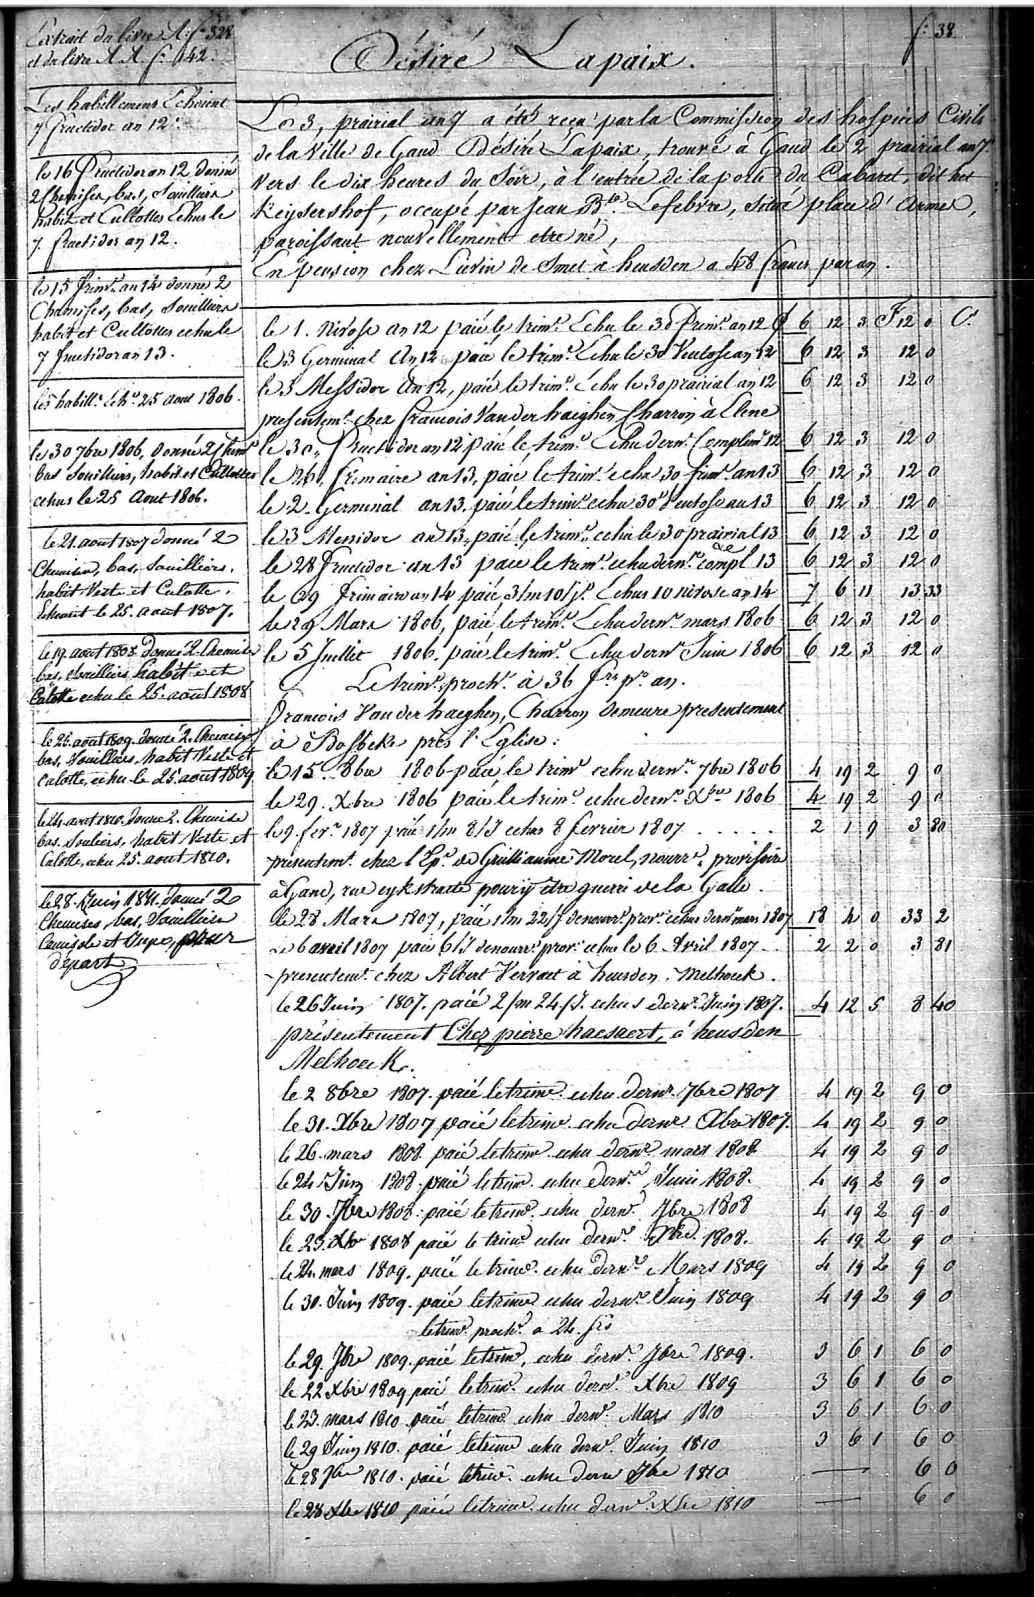 Extrait du livre A. f.º 328
et du livre A A. f.º 142.
f.º 38
Désiré Lapaix.
Les habillemens Echoient
7 fructidor an 12.
le 16 Fructidor an 12 donné
2 Chemises, bas, Souilliers
habit et Culottes echus le
7. fructidor an 12.
le 15 frim.e an 14 donné 2
Chemises, bas, Souilliers
habit et Culottes echu le
7 fructidor an 13.
les habill.s Ech.s 25 aout 1806.
le 30 7bre 1806, donné 2 Chem.s
bas Souilliers, habit et Culottes
echus le 25 Aout 1806.
le 21. aout 1807 donné 2
Chemises, bas, Souilliers,
habit Veste et Culotte.
Echuent le 25. aout 1807.
le 19. aout 1808 donné 2. Chemises
bas, Souilliers habit et
Culotte echu le 25. août 1808
le 26. août 1809. donné 2. Chemises
bas, Souilliers, habit Veste et
Culotte, echu le 25. août 1809
le 24. aout 1810. donné 2. Chemise
bas. Souliers, habit Veste et
Culotte, echu 25. aout 1810.
le 28. Juin 1811. donné 2
Chemises, bas, Souilliers
Camisole et Jupe, pour
départ
Le 3, prairial an 7 a été reçu par la Commission des hospices Civils
de la Ville de Gand Désiré Lapaix, trouvé à Gand le 2 prairial an 7
vers le dix heures du Soir, à l'entrée de la porte du Cabaret, dit het
Keysershof, occupé par Jean B.te Lefebvre, situé place d'Armes,
paroissant nouvellement etre né,
En pension chez Livin de Smet à heusden a 48 francs par an.
le 1. Nivose an 12 paié le trim.e Echu le 30 Frim.e an 12 £ 6 12 3 F 12 0 C.s
le 3 Germinal An 12 paié le trim.e Echu le 30 Ventose an 12 6 12 3 12 0
le 3 Messidor An 12, paié le trim.e Echu le 30 prairial an 12 6 12 3 12 0
presentem.t chez francois Van der haeghen Charron à Elene
le 30, Fructidor an 12 paié le trim.e Echu dern.r Complim.re 12 6 12 3 12 0
le 26, frimaire an 13, paié le trim.e echu 30 frim.e an 13 6 12 3 12 0
le 2 Germinal an 13. paié le trim.e echu 30 Ventose an 13 6 12 3 12 0
le 3 Messidor an 13, paié le trim.e echu le 30 prairial 13 6 12 3 12 0
le 28 fructidor an 13 paié le trim.e echu dern.r compl.re 13 6 12 3 12 0
le 29 frimaire an 14 paié 3/m 10/j.s Echus 10 nivose an 14 7 6 11 13 33
le 29 Mars 1806, paié le trim.e Echu dern.r mars 1806 6 12 3 12 0
le 5 Juillet 1806. paié le trim.e Echu dern.r Juin 1806 6 12 3 12 0
Le trim.e proch.n à 36 frs pr. an.
francois Van der haeghen, Charron demeure presentement
à Bosbeke près l'Eglise:
le 15. 8bre 1806 paié le trim.e echu dern.r 7bre 1806 4 19 2 9 0
le 29. Xbre 1806 paié le trim.e echu dern.r Xbre 1806 4 19 2 9 0
le 9. fevr. 1807 paié 1/m 8/J echus 8 fevrier 1807 . . . . . 2 1 9 3 80
presentem.t chez l'Ep.e de Guilliaume Morel, nourr.e provisoire
à Gand, rue eykstraete pour y être gueri de la Galle.
le 28 Mars 1807, paié 1/m 22/J de nourr.e prov.e echus dern.r mars 1807 18 4 0 33 2
Le 6 avril 1807 paié 6/J de nourr.e prov.e echus le 6 Avril 1807. . 2 2 0 3 81
presentem.t chez Albert Vervaet à heusden. Melhoek.
le 26 Juin 1807. paié 2/m 24/J. echus dern.r Juin 1807. 4 12 5 8 40
présentement Chez pierre haesaert, à heusden
Melhoek.
le 2 8bre 1807. paié le trim.e echu dern.r 7bre 1807 4 19 2 9 0
le 31. Xbre 1807 paié le trim.e echu dern.r Xbre 1807. 4 19 2 9 0
le 26. mars 1808 paié le trim.e echu dern.r mars 1808 4 19 2 9 0
le 24 Juin 1808. paié le trim.e echu dern.r Juin 1808. 4 19 2 9 0
le 30. 7bre 1808. paié le trim.e echu dern.r 7bre 1808 4 19 2 9 0
le 23. Xbr 1808 paié le trim.e echu dern.r Xbre 1808. 4 19 2 9 0
le 24. mars 1809. paié le trim.e echu dern.r Mars 1809 4 19 2 9 0
le 30. Juin 1809. paié le trim.e echu dern.r Juin 1809 4 19 2 9 0
le trim.e proch.n a 24. frs
le 29. 7bre 1809. paié le trim.e, echu dern.r 7bre 1809. 3 6 1 6 0
le 22 Xbre 1809 paié le trim.e echu dern.r Xbre 1809 3 6 1 6 0
le 23. mars 1810. paié le trim.e echu dern.r Mars 1810 3 6 1 6 0
le 29 Juin 1810. paié le trim.e echu dern.r Juin 1810 3 6 1 6 0
le 28 7bre 1810. paié le trim.e echu dern.r 7bre 1810 — 6 0
le 28 Xbre 1810 paié le trim.e echu dern.r Xbre 1810 — 6 0